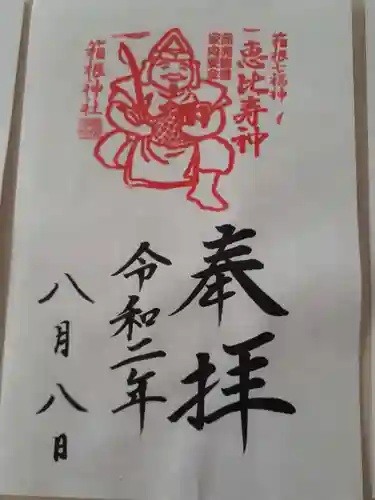 箱根七福神ノ
恵比寿神
箱根神社
奉拝
令和二年
八月八日